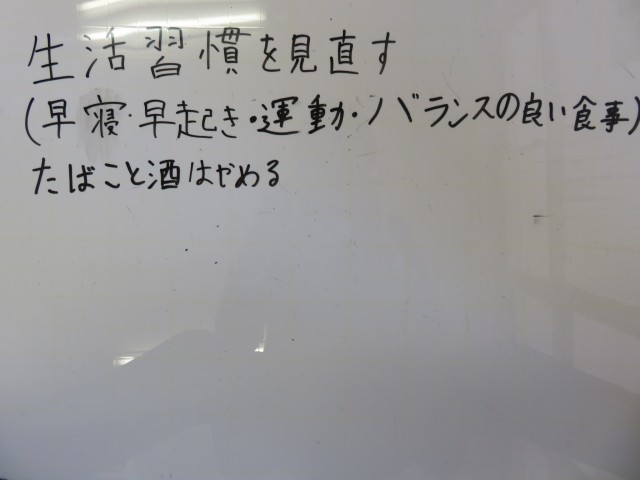 生活習慣を見直す
(早寝・早起き・運動・バランスの良い食事)
たばこと酒はやめる